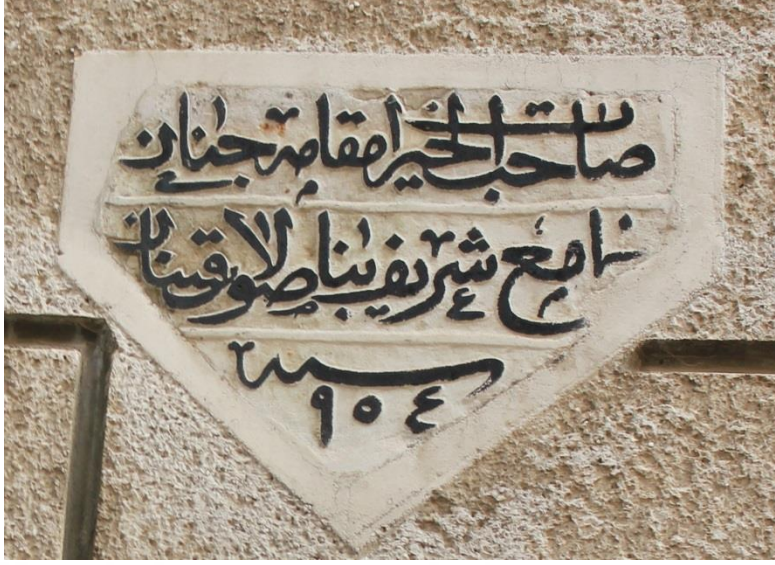 صاحب الخيرات مقامه جنان
جامع شريف بنا صولاق سنان
سنه
٩٥٤